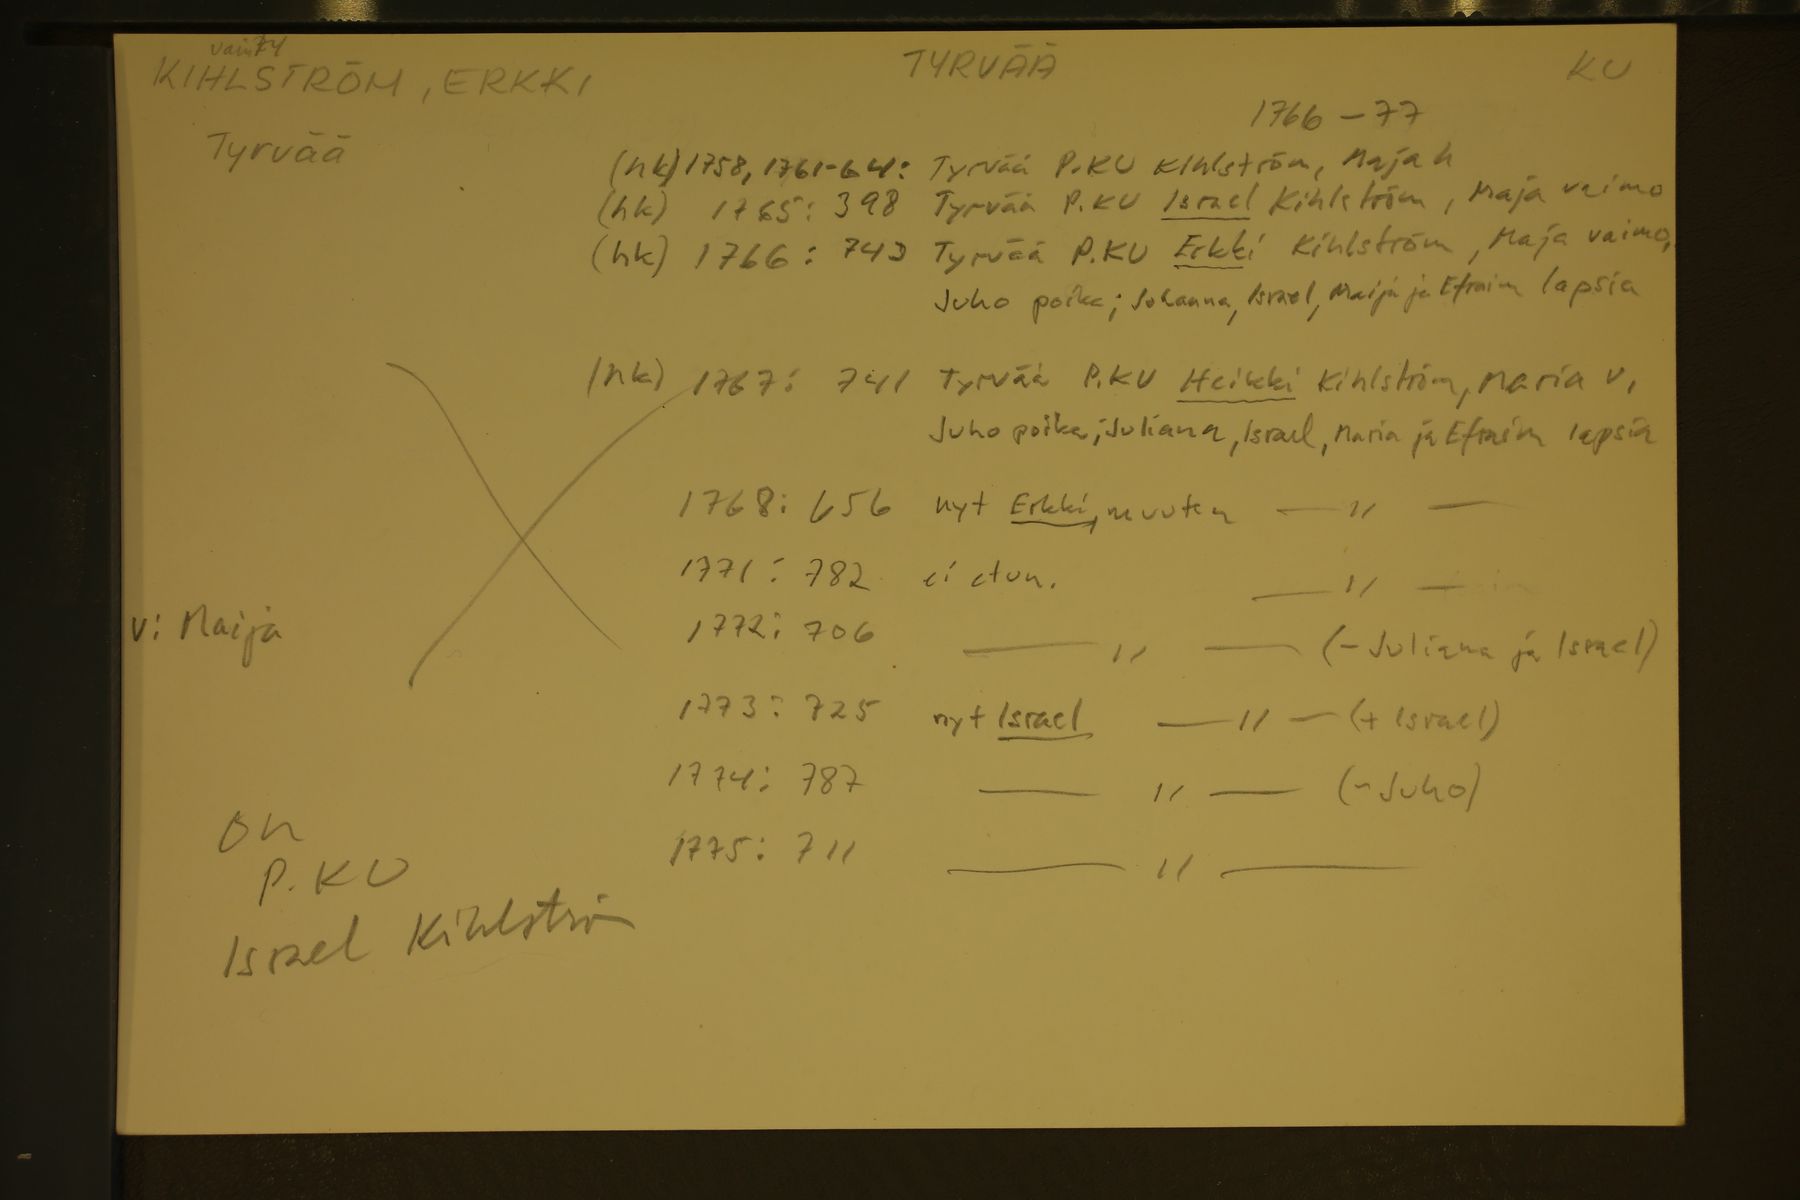 KIHLSTRÖM, ERKKI TYRVÄÄ KU
1766 – 77
Tyrvää
(hk) 1758, 1761-64: Tyrvää P.KU Kihlström, Maja h
(hk) 1765: 398 Tyrvää P.KU Israel Kihlström, Maja vaimo
(hk) 1766: 743 Tyrvää P.KU Erkki Kihlström, Maja vaimo,
Juho poika; Johanna, Israel, Maija ja Efraim lapsia
(hk) 1767: 741 Tyrvää P.KU Heikki Kihlström, Maria v,
Juho poika; Juliana, Israel, Maria ja Efraim lapsia
1768: 656 nyt Erkki, muuten — " —
1771: 782 ei etun. — " —
v: Maija
1772: 706 — " — (– Juliana ja Israel)
1773: 725 nyt Israel — " — (+ Israel)
1774: 787 — " — (– Juho)
1775: 711 — " —
on
P.KU
Israel Kihlström